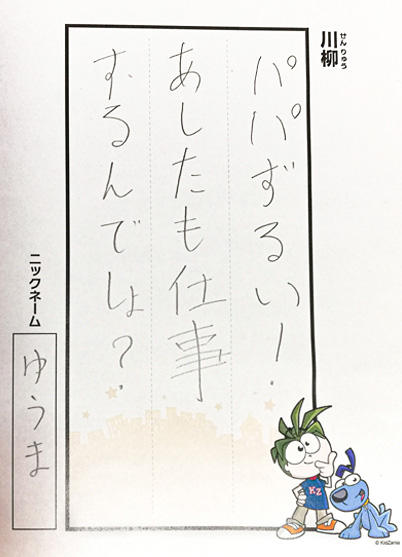 川柳
せんりゅう
パパずるい!
あしたも仕事
するんでしょ?
ニックネーム
ゆうま
KZ
© KidZania